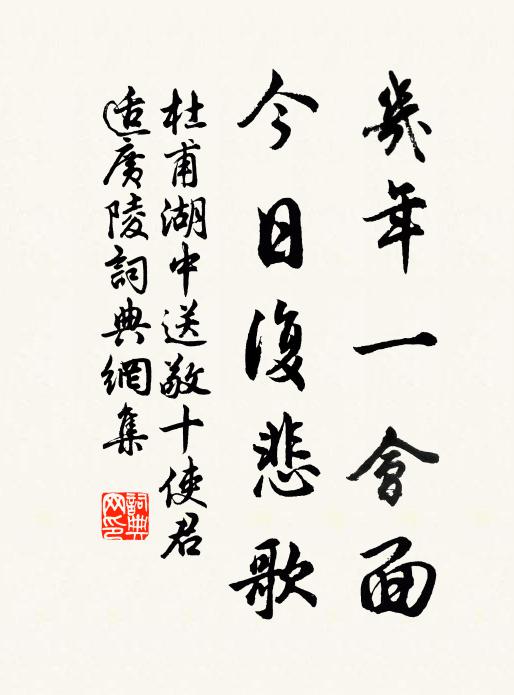 幾年一會面
今日復悲歌
杜甫湖中送敬十使君
适廣陵詞典網集
詞典
网印